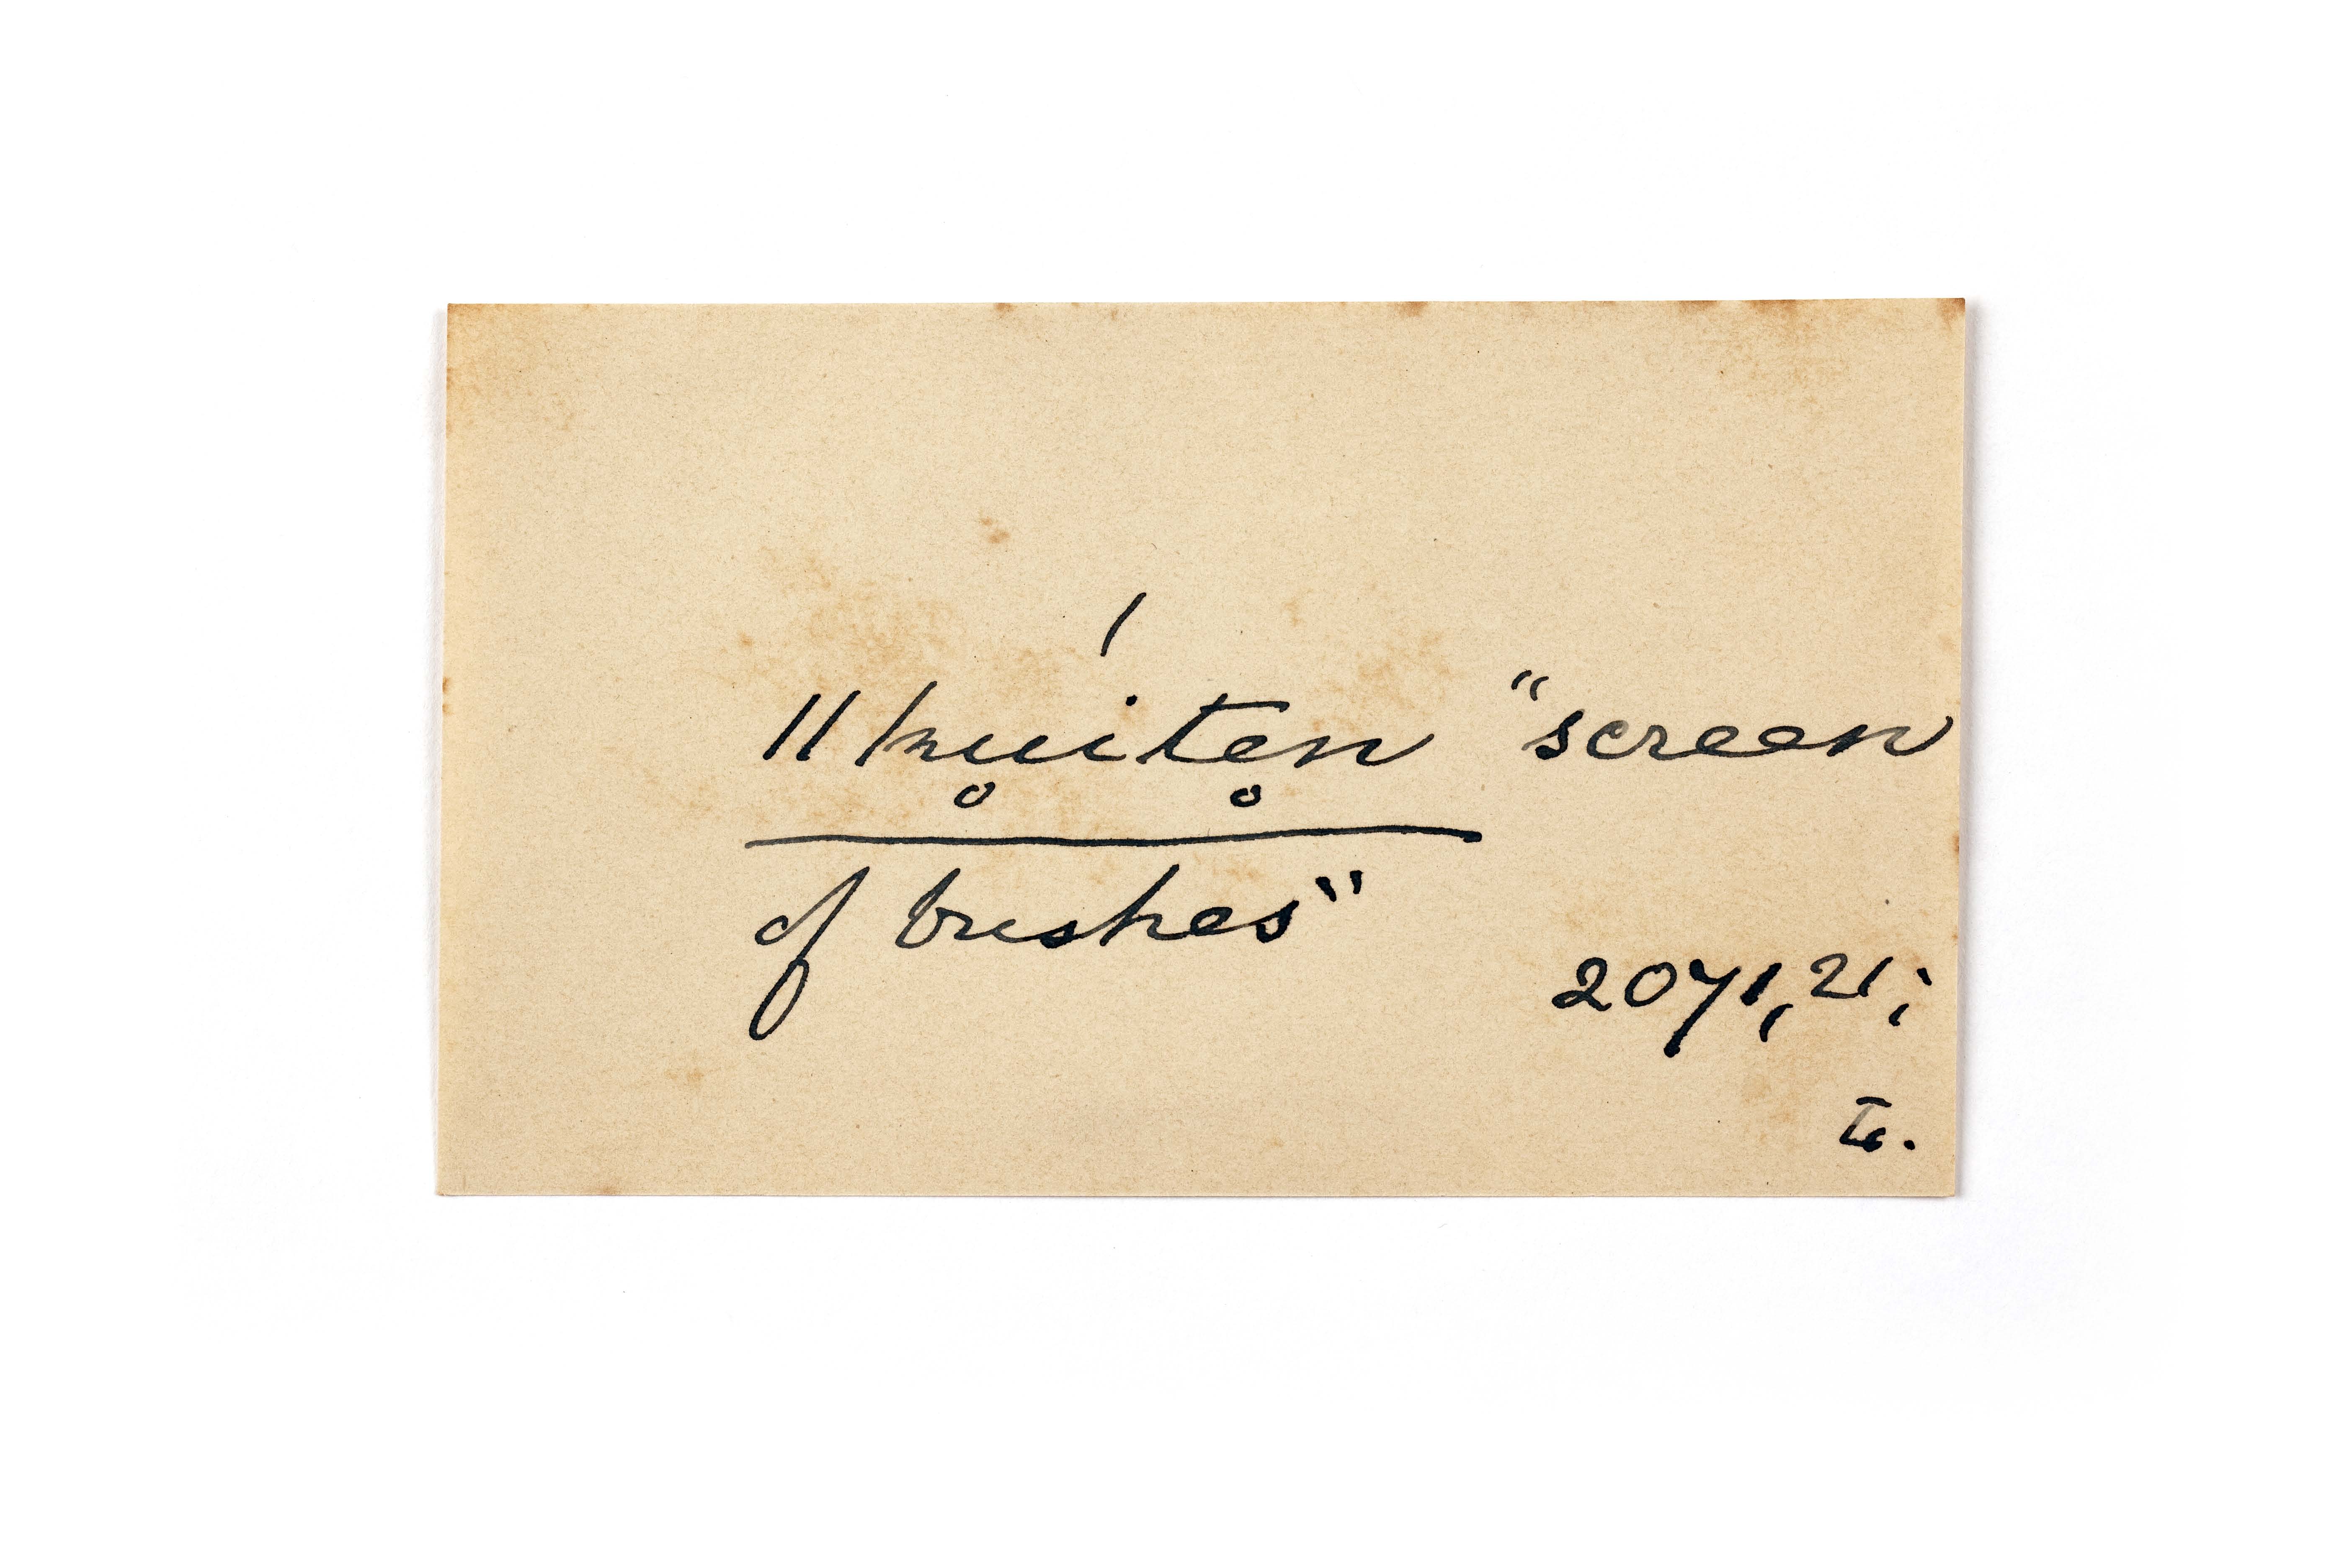 ǁku̥íte̥n "screen
of bushes"
2071, 21;